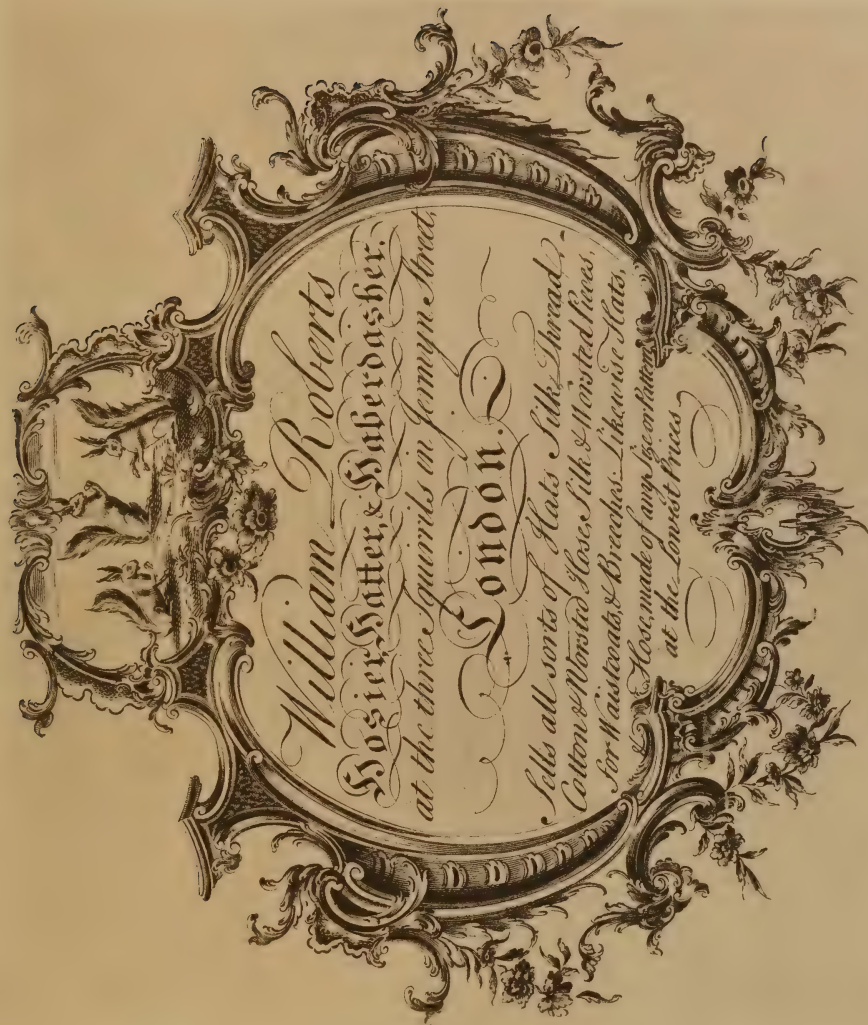 William Roberts
Hosier, Hatter, & Haberdasher.
at the three Squirrils in Jermyn Street,
London.
Sells all sorts of Hats Silk, Thread,
Cotton & Worsted Hose, Silk & Worsted Pieces,
for Waistcoats, & Breeches, Likewise Hats,
& Hose, made of any Size or Pattern,
at the Lowest Prices